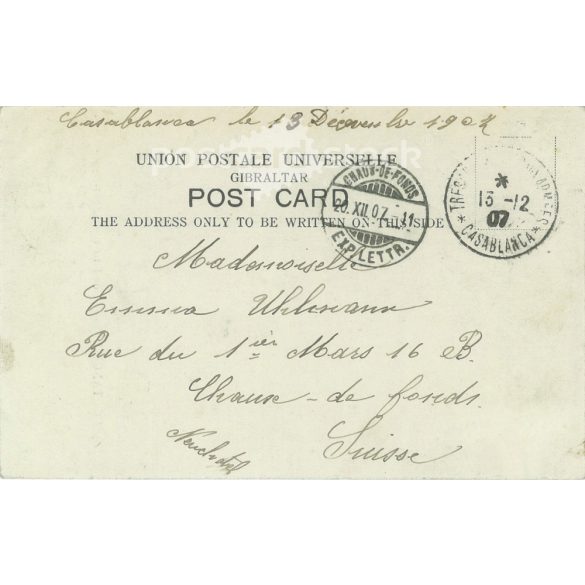 Casablanca le 13 Décembre 1907
UNION POSTALE UNIVERSELLE
GIBRALTAR
POST CARD
THE ADDRESS ONLY TO BE WRITTEN ON THIS SIDE
CHAUX-DE-FONDS
20.XII.07. 11
EXP. LETTR.
TRESOR
*
15 -12
07
* CASABLANCA *
Mademoiselle
Emma Uhlmann
Rue du 1ier Mars 16 B.
Chaux-de fonds.
Neuchatel
Suisse